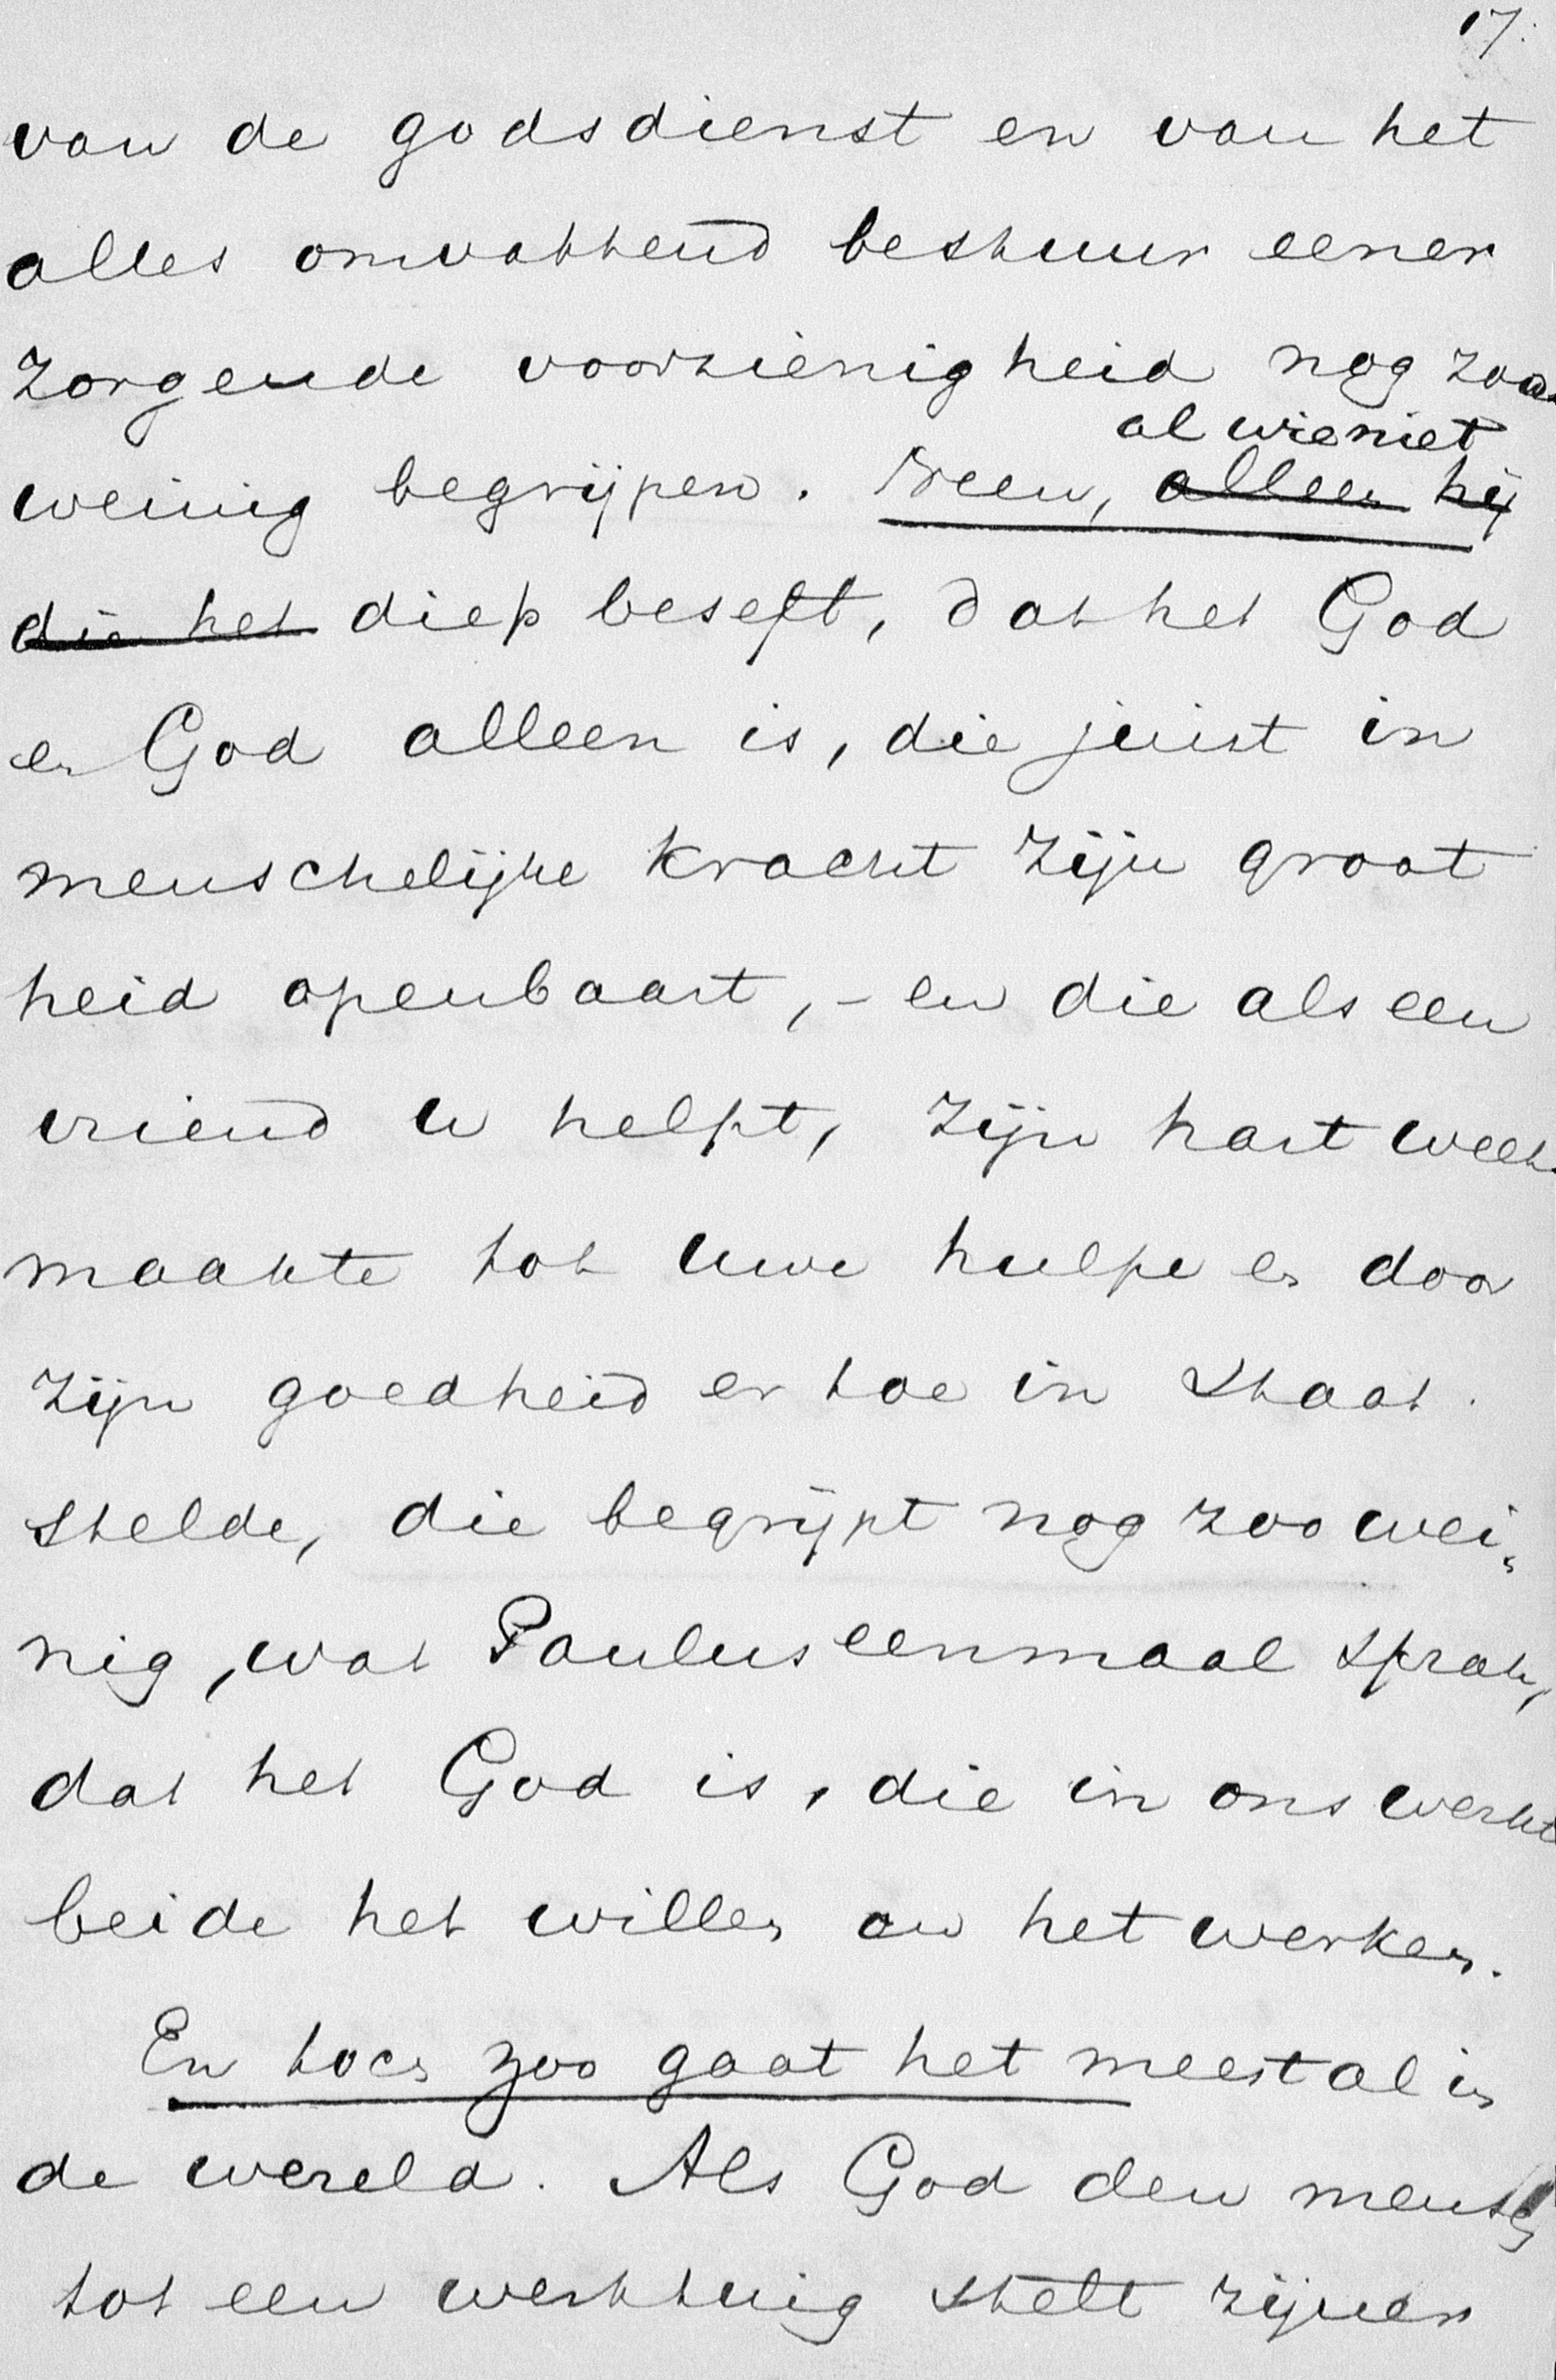 17.
van de godsdienst en van het
alles omvattend bestuur eener
zorgende voorzienigheid nog zoo
al wie niet
weinig begrijpen. Neen, alleen hij
die het diep beseft, dat het God
en God alleen is, die juist in
menschelijke kracht zijn groot
heid openbaart, - en die als een
vriend u helpt, zijn hart week
maakte tot uwe hulpe en door
zijn goedheid er toe in staat
stelde, die begrijpt nog zoo wei„
nig, wat Paulus eenmaal sprak,
dat het God is, die in ons werkt
beide het willen en het werken.
En toch zoo gaat het meestal in
de wereld. Als God den mensch
tot een werktuig stelt zijner